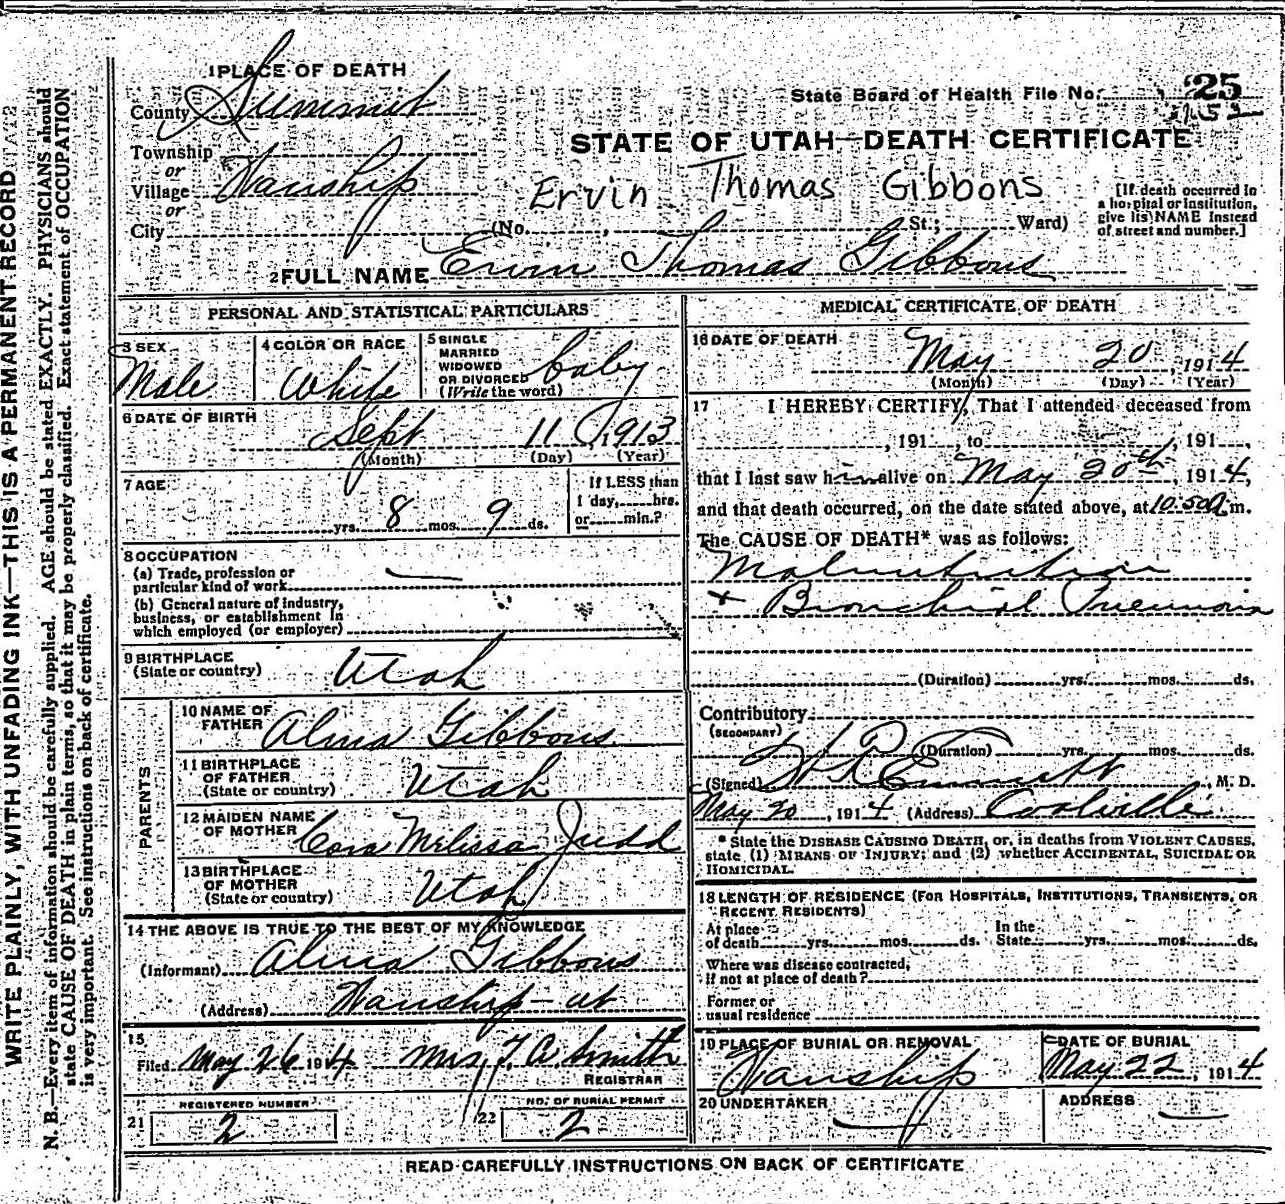 WRITE PLAINLY, WITH UNFADING INK—THIS IS A PERMANENT RECORD
N. B.—Every item of information should be carefully supplied. AGE should be stated EXACTLY. PHYSICIANS should
state CAUSE OF DEATH in plain terms, so that it may be properly classified. Exact statement of OCCUPATION
is very important. See instructions on back of certificate.
1 PLACE OF DEATH
County Summit
State Board of Health File No. 25
Township
or
Village Wanship
or
City
STATE OF UTAH—DEATH CERTIFICATE
Ervin Thomas Gibbons
(No. , St.; Ward)
[If death occurred in
a hospital or institution,
give its NAME instead
of street and number.]
2 FULL NAME Ervin Thomas Gibbons
PERSONAL AND STATISTICAL PARTICULARS
3 SEX
Male
4 COLOR OR RACE
White
5 SINGLE
MARRIED
WIDOWED
OR DIVORCED
(Write the word)
baby
6 DATE OF BIRTH
Sept 11, 1913
(Month) (Day) (Year)
7 AGE
yrs. 8 mos. 9 ds.
If LESS than
1 day, hrs.
or min.?
8 OCCUPATION
(a) Trade, profession or
particular kind of work —
(b) General nature of industry,
business, or establishment in
which employed (or employer)
9 BIRTHPLACE
(State or country)
Utah
PARENTS
10 NAME OF
FATHER
Alma Gibbons
11 BIRTHPLACE
OF FATHER
(State or country)
Utah
12 MAIDEN NAME
OF MOTHER
Cora Melissa Judd
13 BIRTHPLACE
OF MOTHER
(State or country)
Utah
14 THE ABOVE IS TRUE TO THE BEST OF MY KNOWLEDGE
(Informant) Alma Gibbons
(Address) Wanship - ut
15
Filed May 26 1914 Mrs. J. A. Smith
REGISTRAR
REGISTERED NUMBER
21 2
NO. OF BURIAL PERMIT
22 2
MEDICAL CERTIFICATE OF DEATH
16 DATE OF DEATH
May 20, 1914
(Month) (Day) (Year)
17 I HEREBY CERTIFY, That I attended deceased from
, 191 , to , 191 ,
that I last saw him alive on May 20th, 1914,
and that death occurred, on the date stated above, at 10.50 A m.
The CAUSE OF DEATH* was as follows:
Malnutrition
+ Bronchial Pneumonia
(Duration) yrs. mos. ds.
Contributory
(SECONDARY)
(Duration) yrs. mos. ds.
(Signed) Emmett, M. D.
May 20, 1914 (Address) Coalville
* State the DISEASE CAUSING DEATH, or, in deaths from VIOLENT CAUSES,
state (1) MEANS OF INJURY; and (2) whether ACCIDENTAL, SUICIDAL OR
HOMICIDAL.
18 LENGTH OF RESIDENCE (FOR HOSPITALS, INSTITUTIONS, TRANSIENTS, OR
RECENT RESIDENTS)
At place
of death yrs. mos. ds.
In the
State yrs. mos. ds.
Where was disease contracted,
if not at place of death?
Former or
usual residence
19 PLACE OF BURIAL OR REMOVAL
Wanship
DATE OF BURIAL
May 22, 1914
20 UNDERTAKER
—
ADDRESS
—
READ CAREFULLY INSTRUCTIONS ON BACK OF CERTIFICATE